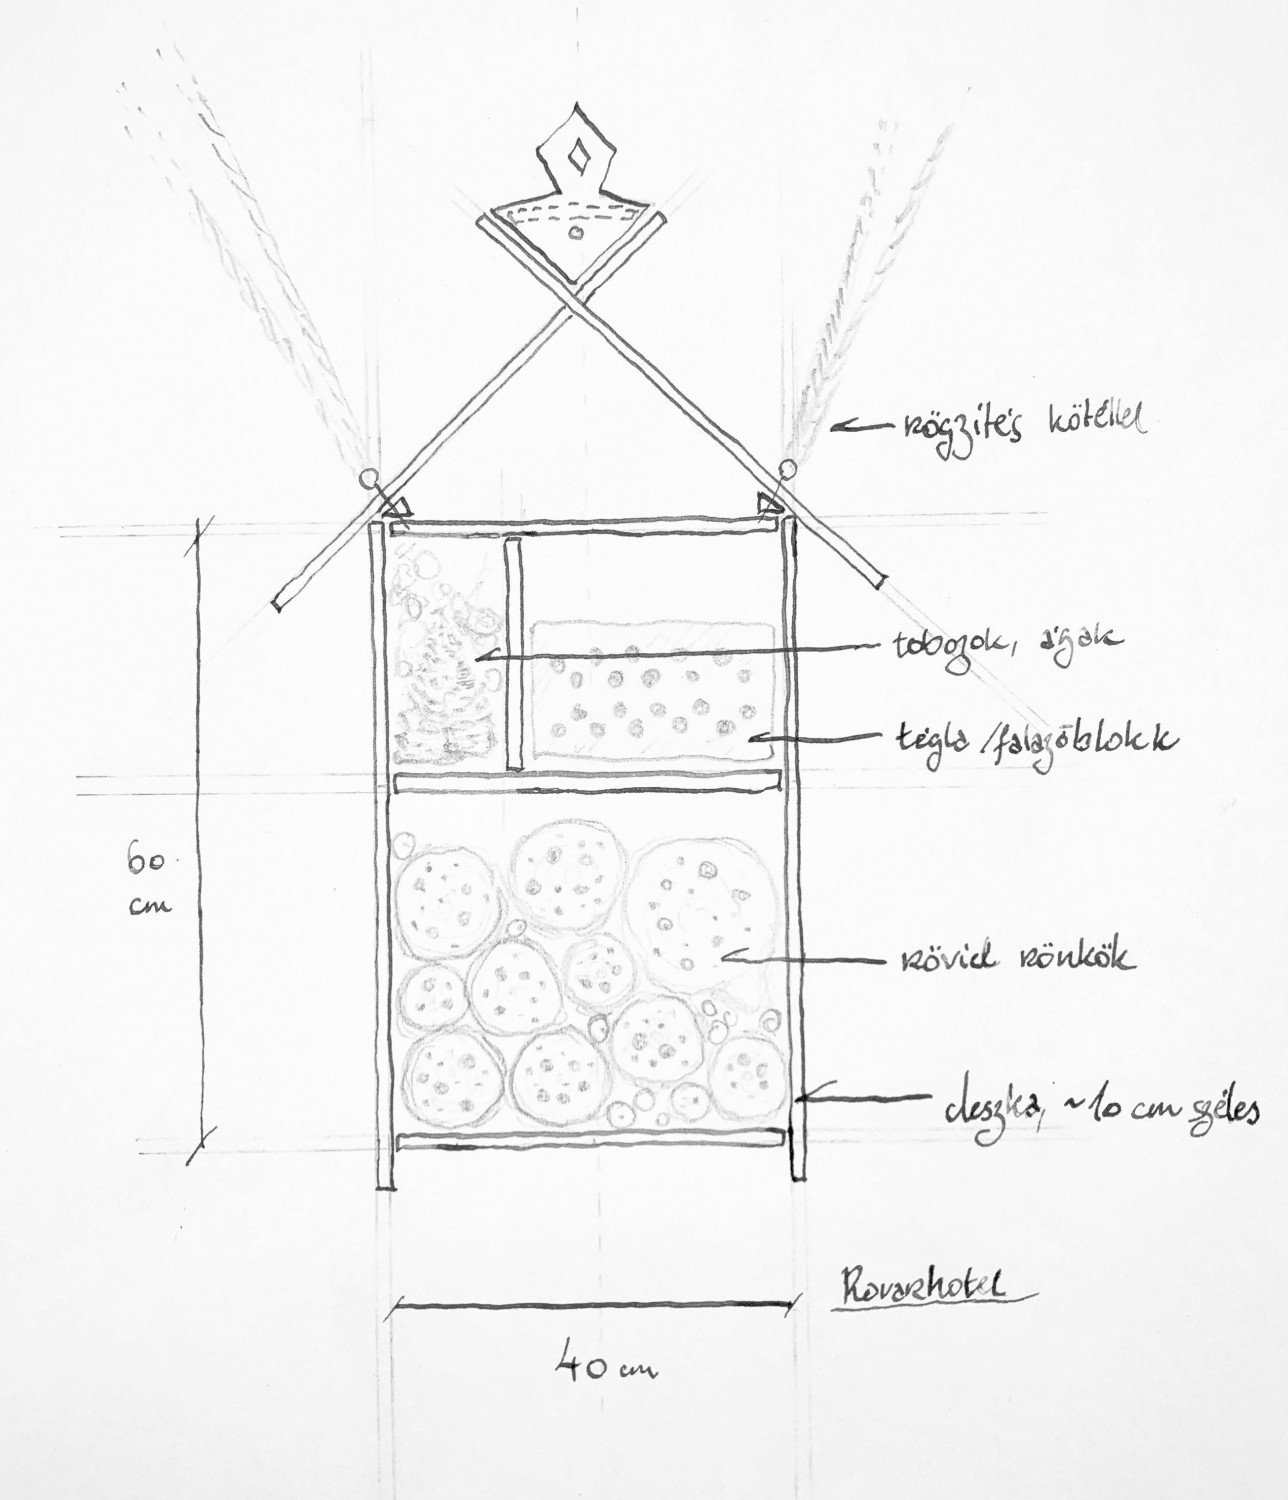 rögzítés kötéllel
tobozok, ágak
tégla/falazóblokk
60
cm
rövid rönkök
deszka, ~10 cm széles
Rovarhotel
40 cm